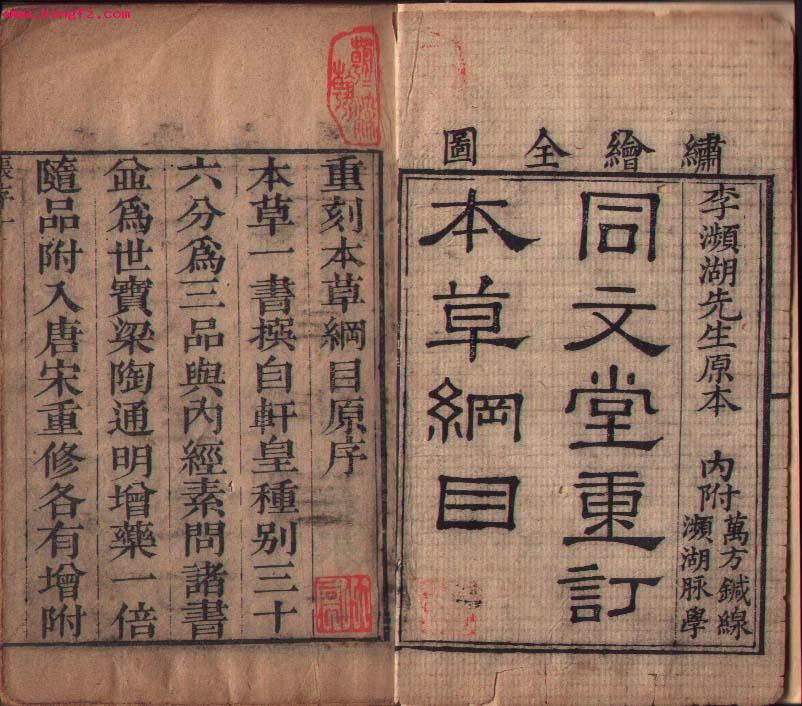 www.kongfz.com
繡繪全圖
李瀕湖先生原本 內附萬方鍼線瀕湖脉學
同文堂重訂
本草綱目
重刻本草綱目原序
本草一書撰自軒皇種別三十
六分爲三品與內經素問諸書
並爲世寶梁陶通明增藥一倍
隨品附入唐宋重修各有增附
張序一